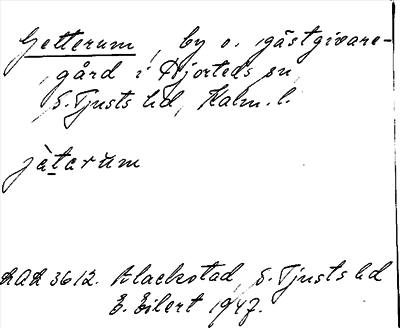 Getterum, by o. gästgivare-
gård i Hjorteds sn,
S. Tjusts hd, Kalm. l.
jàtarùm
RAÄ 3612. Blackstad, S. Tjusts hd
E. Eilert 1947.